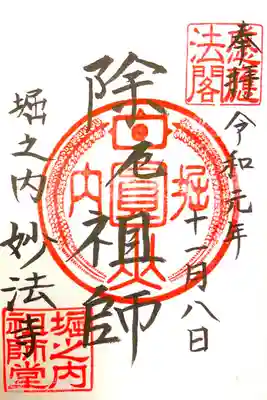 奉拝
令和元年
十一月八日
除厄祖師
堀之内
妙法寺
法閣
堀之内
堀之内
祖師堂